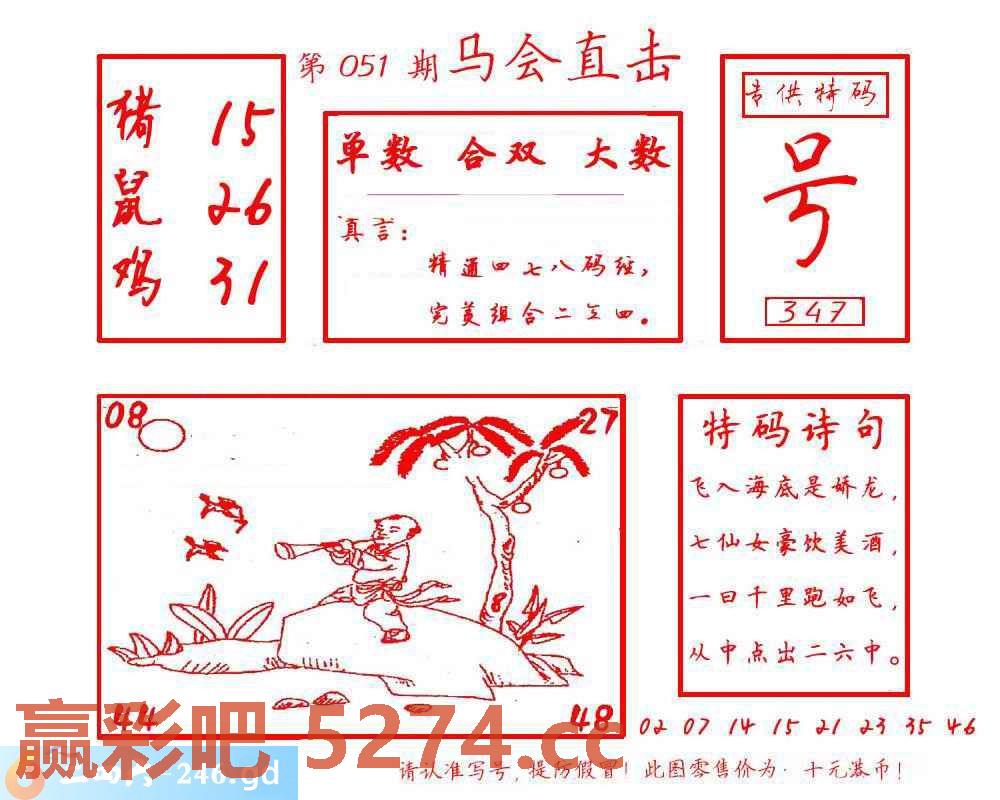 第 051 期 马会直击
猪 15
鼠 26
鸡 31
单数 合双 大数
真言:
精通四七八码经,
完美组合二三四。
专供特码
号
347
08
27
8
44
48
特码诗句
飞入海底是娇龙,
七仙女豪饮美酒,
一日千里跑如飞,
从中点出二六中。
02 07 14 15 21 23 35 46
赢彩吧 5274.cc
-246.gd
请认准写号,提防假冒!此图零售价为·十元港币!